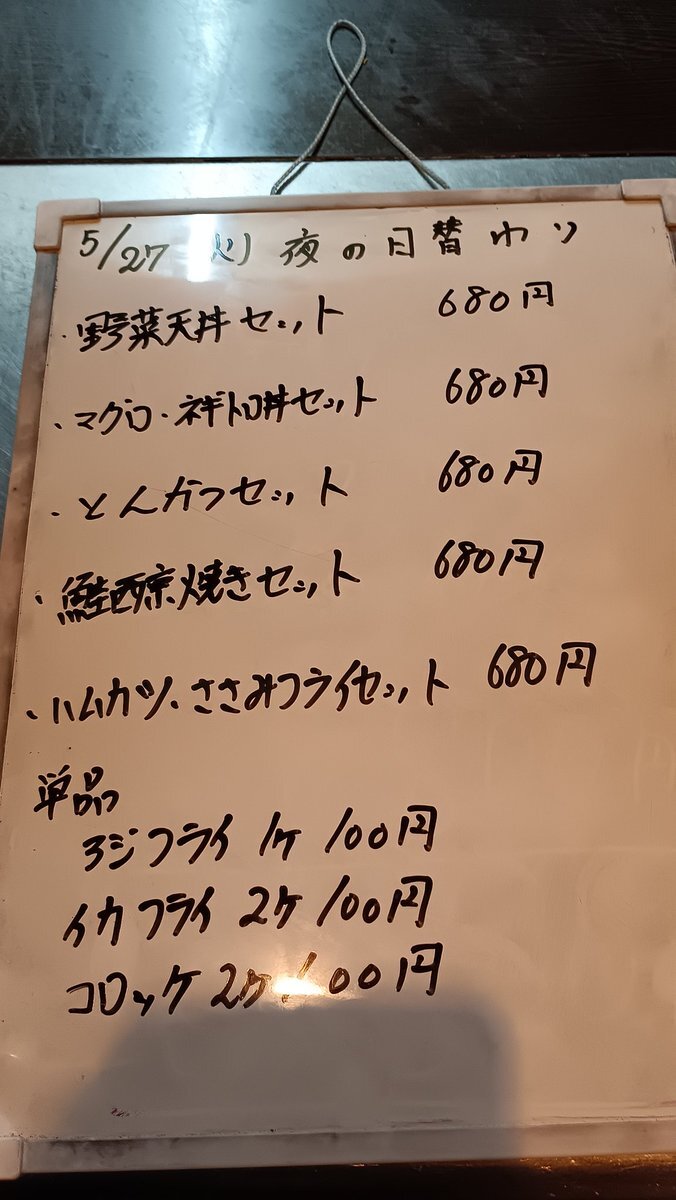 5/27 火) 夜の日替わり
・野菜天丼セット 680円
・マグロ・ネギトロ丼セット 680円
・とんかつセット 680円
・鮭西京焼きセット 680円
・ハムカツ、ささみフライセット 680円
単品
アジフライ 1ケ 100円
イカフライ 2ケ 100円
コロッケ 2ケ 100円